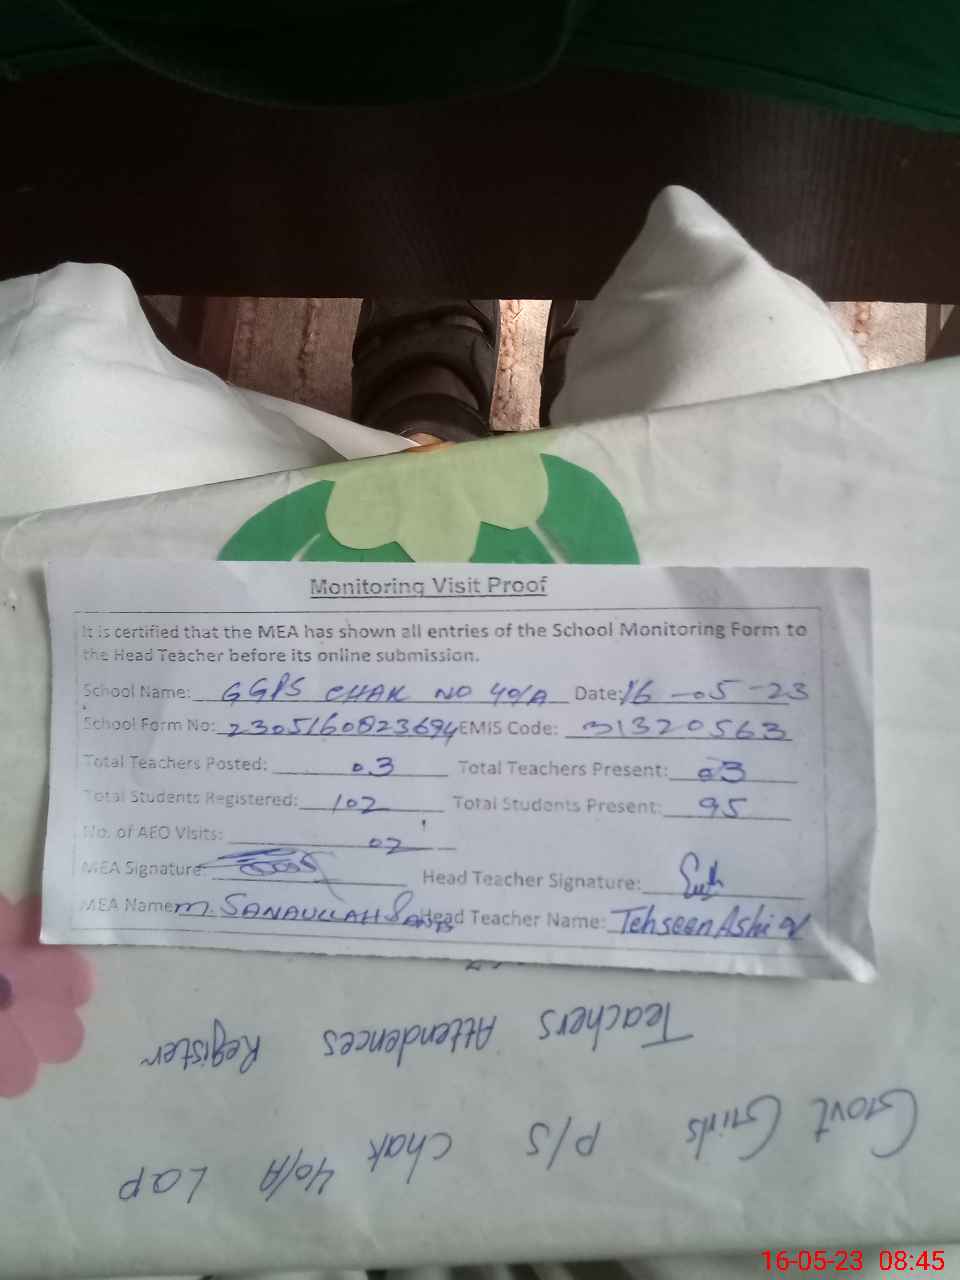 Monitoring Visit Proof
It is certified that the MEA has shown all entries of the School Monitoring Form to
the Head Teacher before its online submission.
School Name: GGPS CHAK NO 40/A Date: 16-05-23
School Form No: 2305160823694 EMIS Code: 31320563
Total Teachers Posted: 03 Total Teachers Present: 03
Total Students Registered: 102 Total Students Present: 95
No. of AEO Visits: 02
MEA Signature: Head Teacher Signature:
MEA Name: M. SANAULLAH Head Teacher Name: Tehseen Ashiq
Govt Girls P/S Chak 40/A LQP
Teachers Attendences Register
16-05-23 08:45